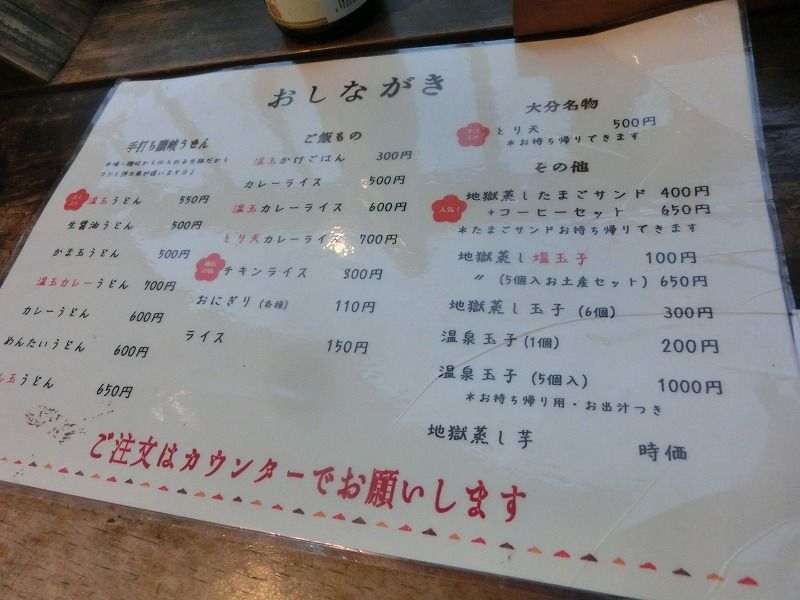 おしながき
手打ち讃岐うどん
本場・讃岐から仕入れる生麺だから
コシと弾力感が違います♪♪
オススメ 温玉うどん 550円
生醤油うどん 500円
かま玉うどん 500円
温玉カレーうどん 700円
カレーうどん 600円
めんたいうどん 600円
玉うどん 650円
ご飯もの
温玉かけごはん 300円
カレーライス 500円
温玉カレーライス 600円
とり天カレーライス 700円
チキンライス 800円
おにぎり (各種) 110円
ライス 150円
大分名物
オススメ とり天 500円
*お持ち帰りできます
その他
人気! 地獄蒸したまごサンド 400円
+コーヒーセット 650円
*たまごサンドお持ち帰りできます
地獄蒸し塩玉子 100円
〃 (5個入お土産セット) 650円
地獄蒸し玉子 (6個) 300円
温泉玉子 (1個) 200円
温泉玉子 (5個入) 1000円
*お持ち帰り用・お出汁つき
地獄蒸し芋 時価
ご注文はカウンターでお願いします